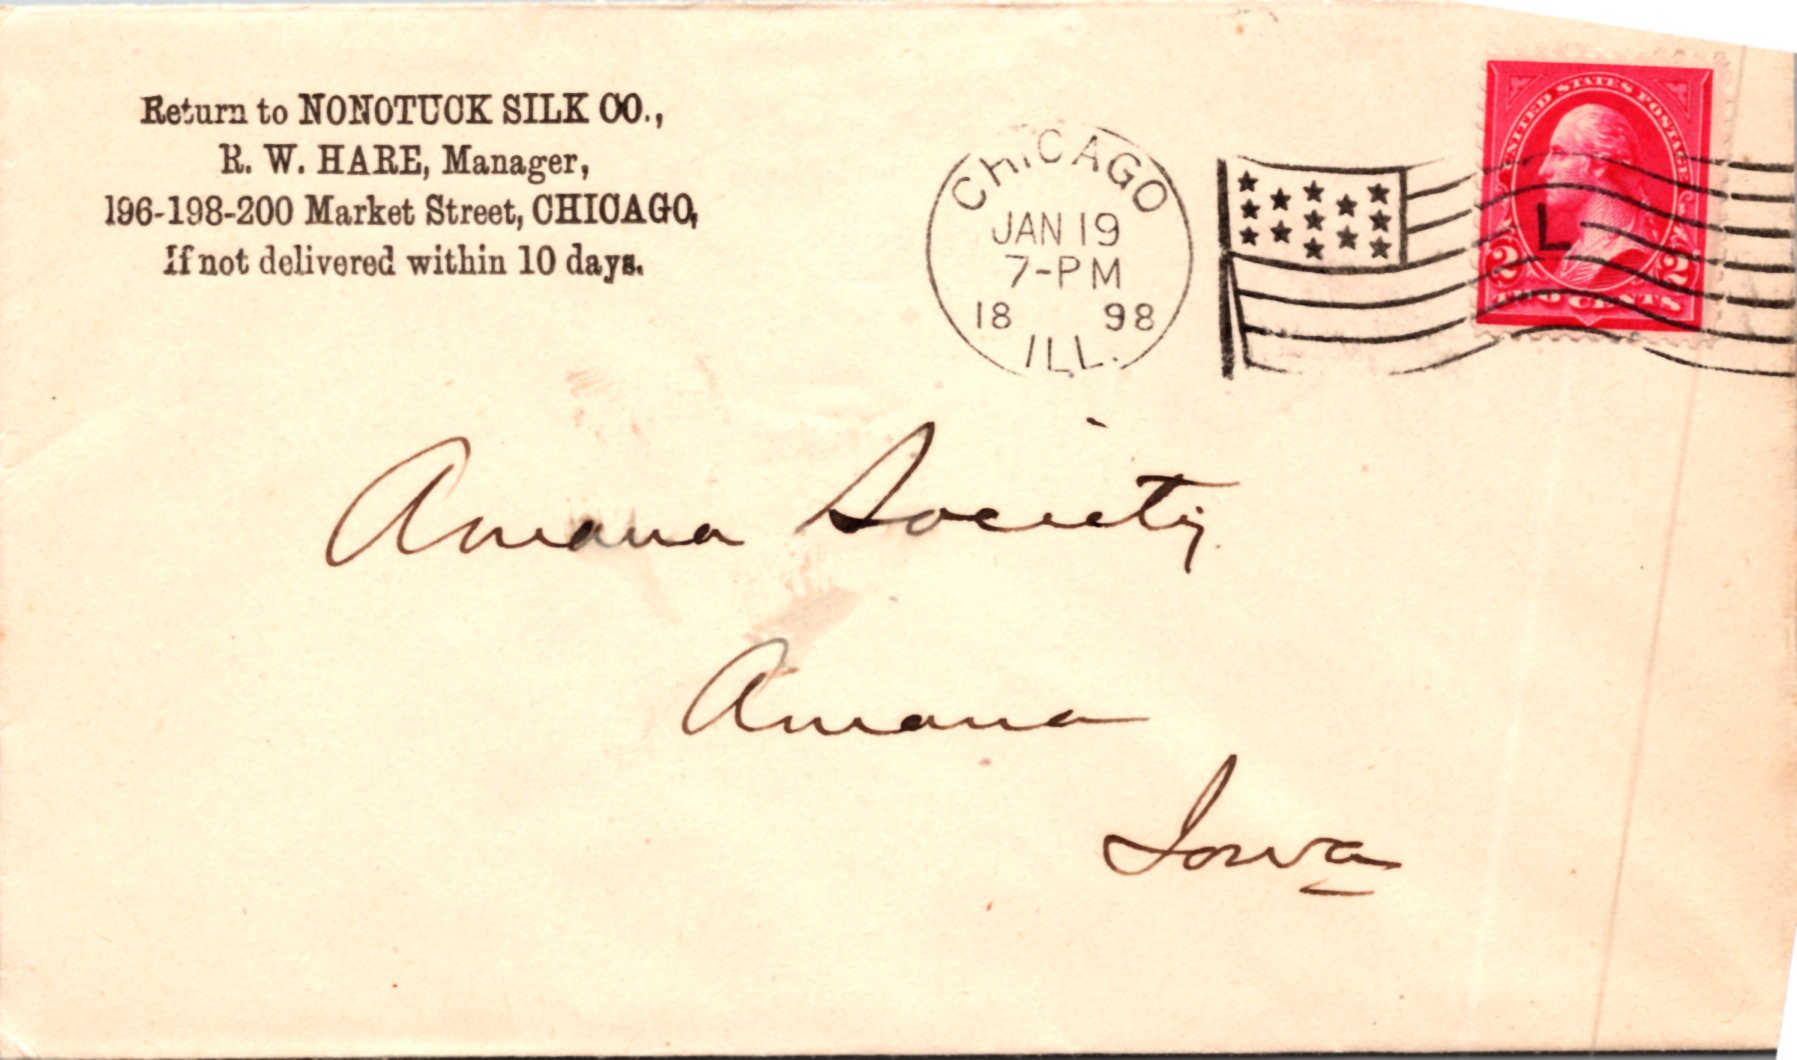 Return to NONOTUCK SILK CO.,
R. W. HARE, Manager,
196-198-200 Market Street, CHICAGO,
If not delivered within 10 days.
CHICAGO
JAN 19
7-PM
18 98
ILL.
L
UNITED STATES POSTAGE
2 2
TWO CENTS
Amana Society
Amana
Iowa